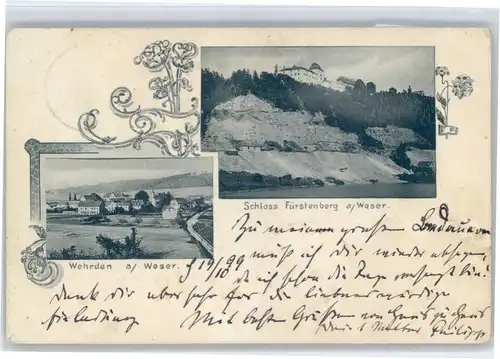 Schloss Fürstenberg a/Weser.
Wehrden a/ Weser.
Zu meinem großen Bedauern
muß ich dir wieder absagen,
19/10 99
da ich schon
danke dir aber sehr für die liebenswürdige
Einladung
Mit besten Grüßen von Haus zu Haus
Philipp